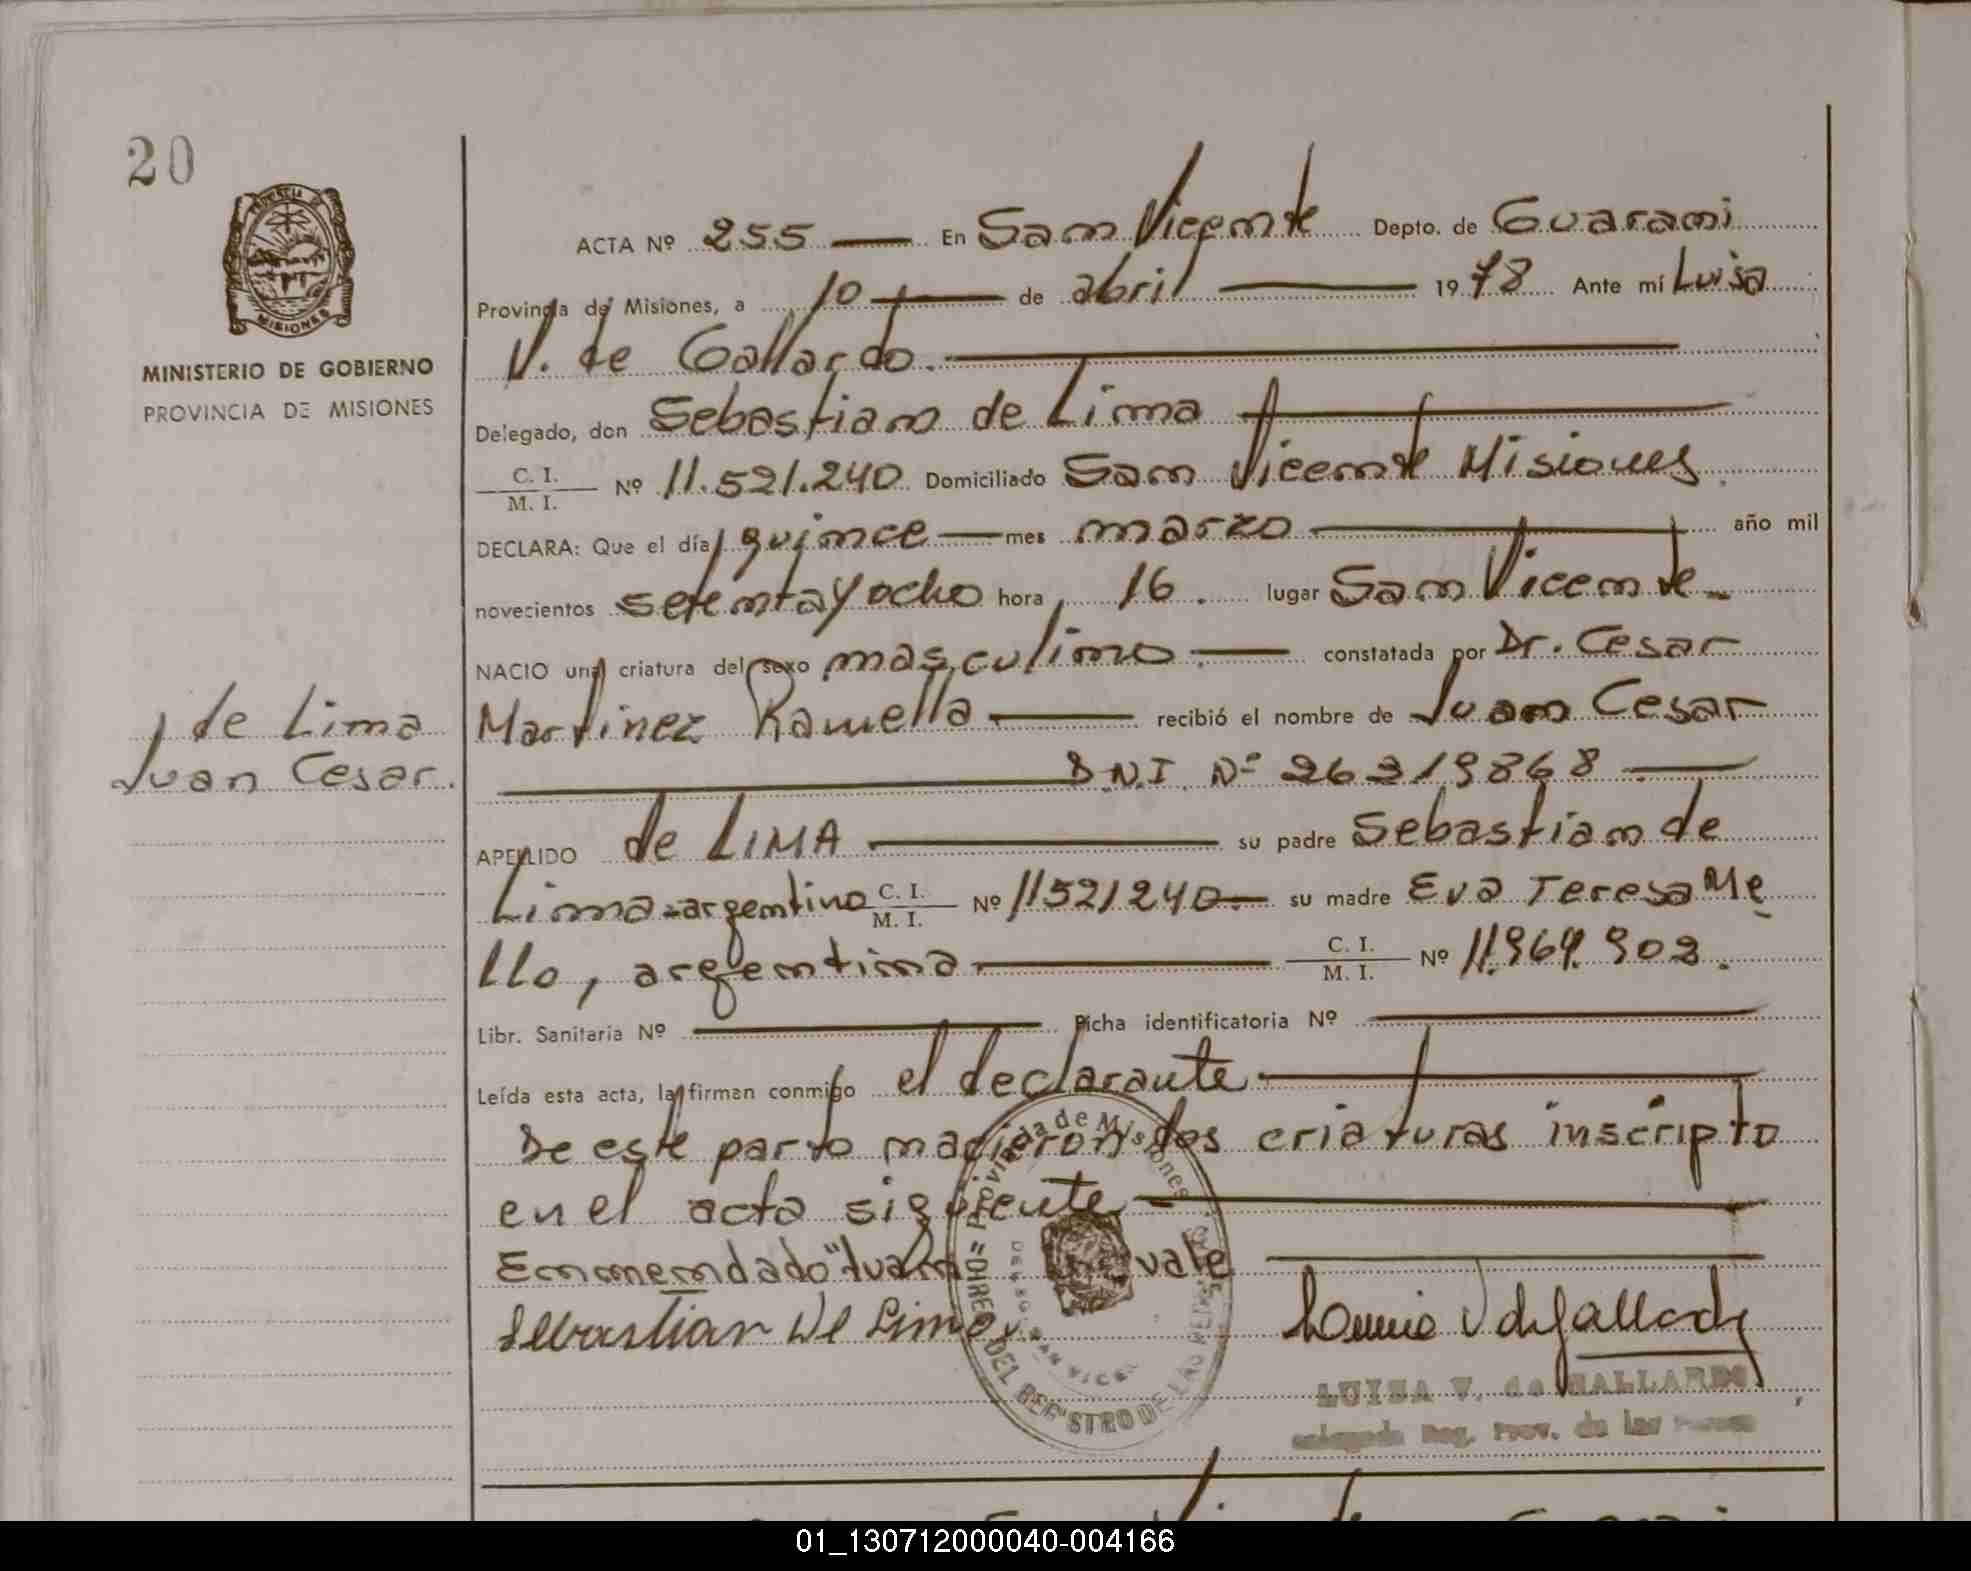 20
PROVINCIA DE
MISIONES
MINISTERIO DE GOBIERNO
PROVINCIA DE MISIONES
de Lima
Juan Cesar.
ACTA Nº 255 — En San Vicente Depto. de Guarani
Provincia de Misiones, a 10 — de abril — 1978 Ante mí Luisa
V. de Gallardo. —
Delegado, don Sebastian de Lima —
C. I. / M. I. Nº 11.521.240 Domiciliado San Vicente Misiones
DECLARA: Que el día quince — mes marzo — año mil
novecientos setenta y ocho hora 16. lugar San Vicente —
NACIO una criatura del sexo masculino — constatada por Dr. Cesar
Martinez Ramella — recibió el nombre de Juan Cesar
— D.N.I. Nº 26219868 —
APELLIDO de LIMA — su padre Sebastian de
Lima - argentino C. I. / M. I. Nº 11521240 — su madre Eva Teresa Me
llo, argentina — C. I. / M. I. Nº 11.964.902.
Libr. Sanitaria Nº — Ficha identificatoria Nº —
Leída esta acta, la firman conmigo el declarante —
De este parto nacieron dos criaturas inscripto
en el acta siguiente —
Enmendado "Juan vale —
Sebastian de Lima
LUISA V. de GALLARDO
Reg. Prov. de las
Provincia de Misiones
DEL REGISTRO DE LAS
01_130712000040-004166